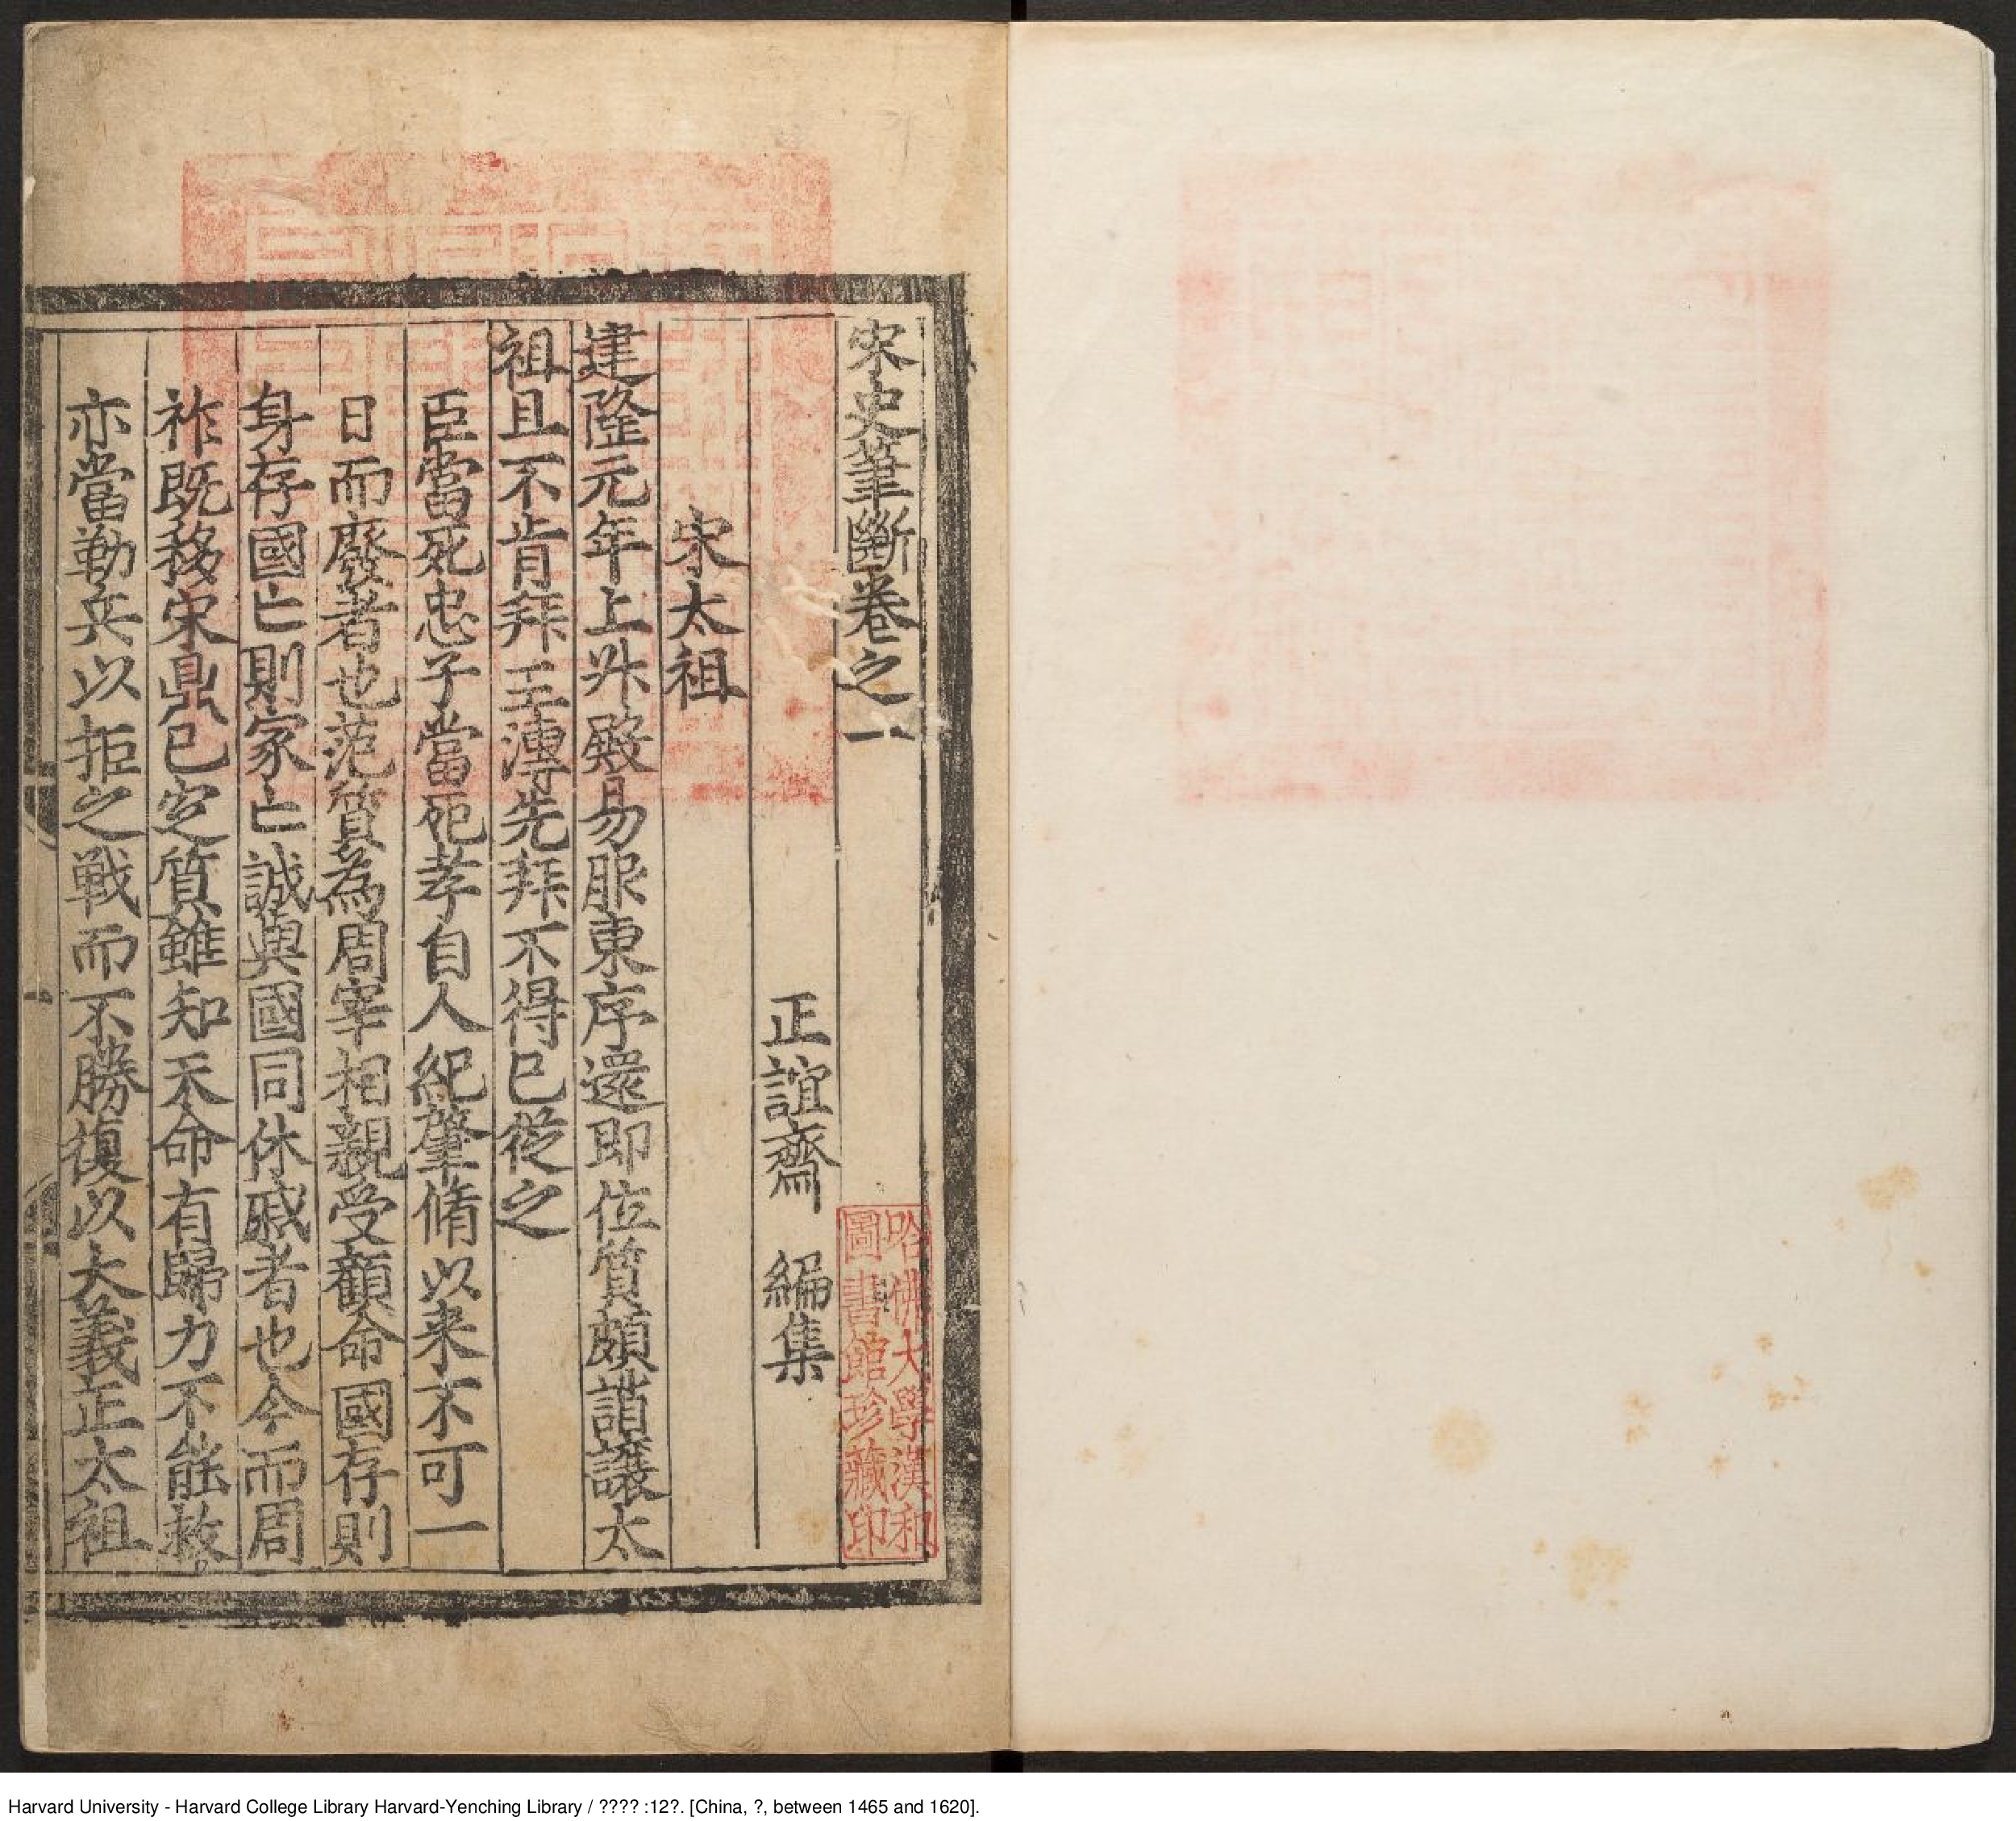 宋史筆斷卷之一
正誼齋 編集
宋太祖
建隆元年上升殿易服東序還即位質頗誚讓太
祖且不肯拜王溥先拜不得已從之
臣當死忠子當死孝自人紀肇脩以来不可一
日而廢者也范質為周宰相親受顧命國存則
身存國亡則家亡誠與國同休戚者也今而周
祚既移宋鼎已定質雖知天命有歸力不能救
亦當勒兵以拒之戰而不勝復以大義正太祖
哈佛大學漢和
圖書館珍藏印
Harvard University - Harvard College Library Harvard-Yenching Library / ???? :12?. [China, ?, between 1465 and 1620].